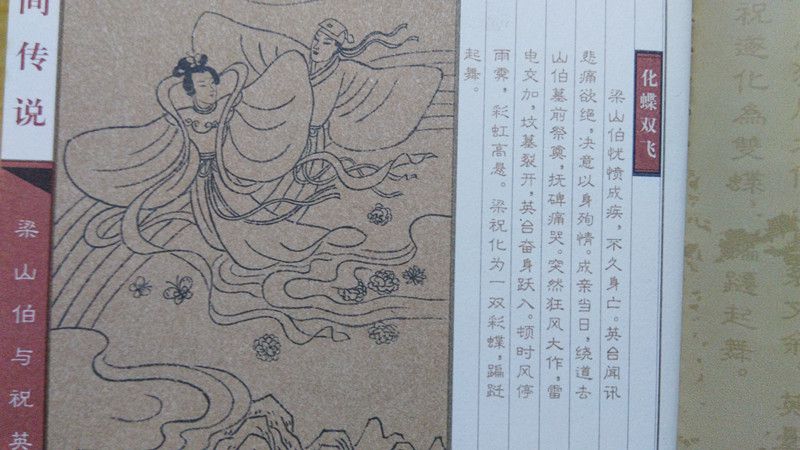 化蝶双飞
梁山伯忧愤成疾，不久身亡。英台闻讯
悲痛欲绝，决意以身殉情。成亲当日，绕道去
山伯墓前祭奠，抚碑痛哭。突然狂风大作，雷
电交加，坟墓裂开，英台奋身跃入。顿时风停
雨霁，彩虹高悬。梁祝化为一双彩蝶，蹁跹
起舞。
间传说
梁山伯与祝英